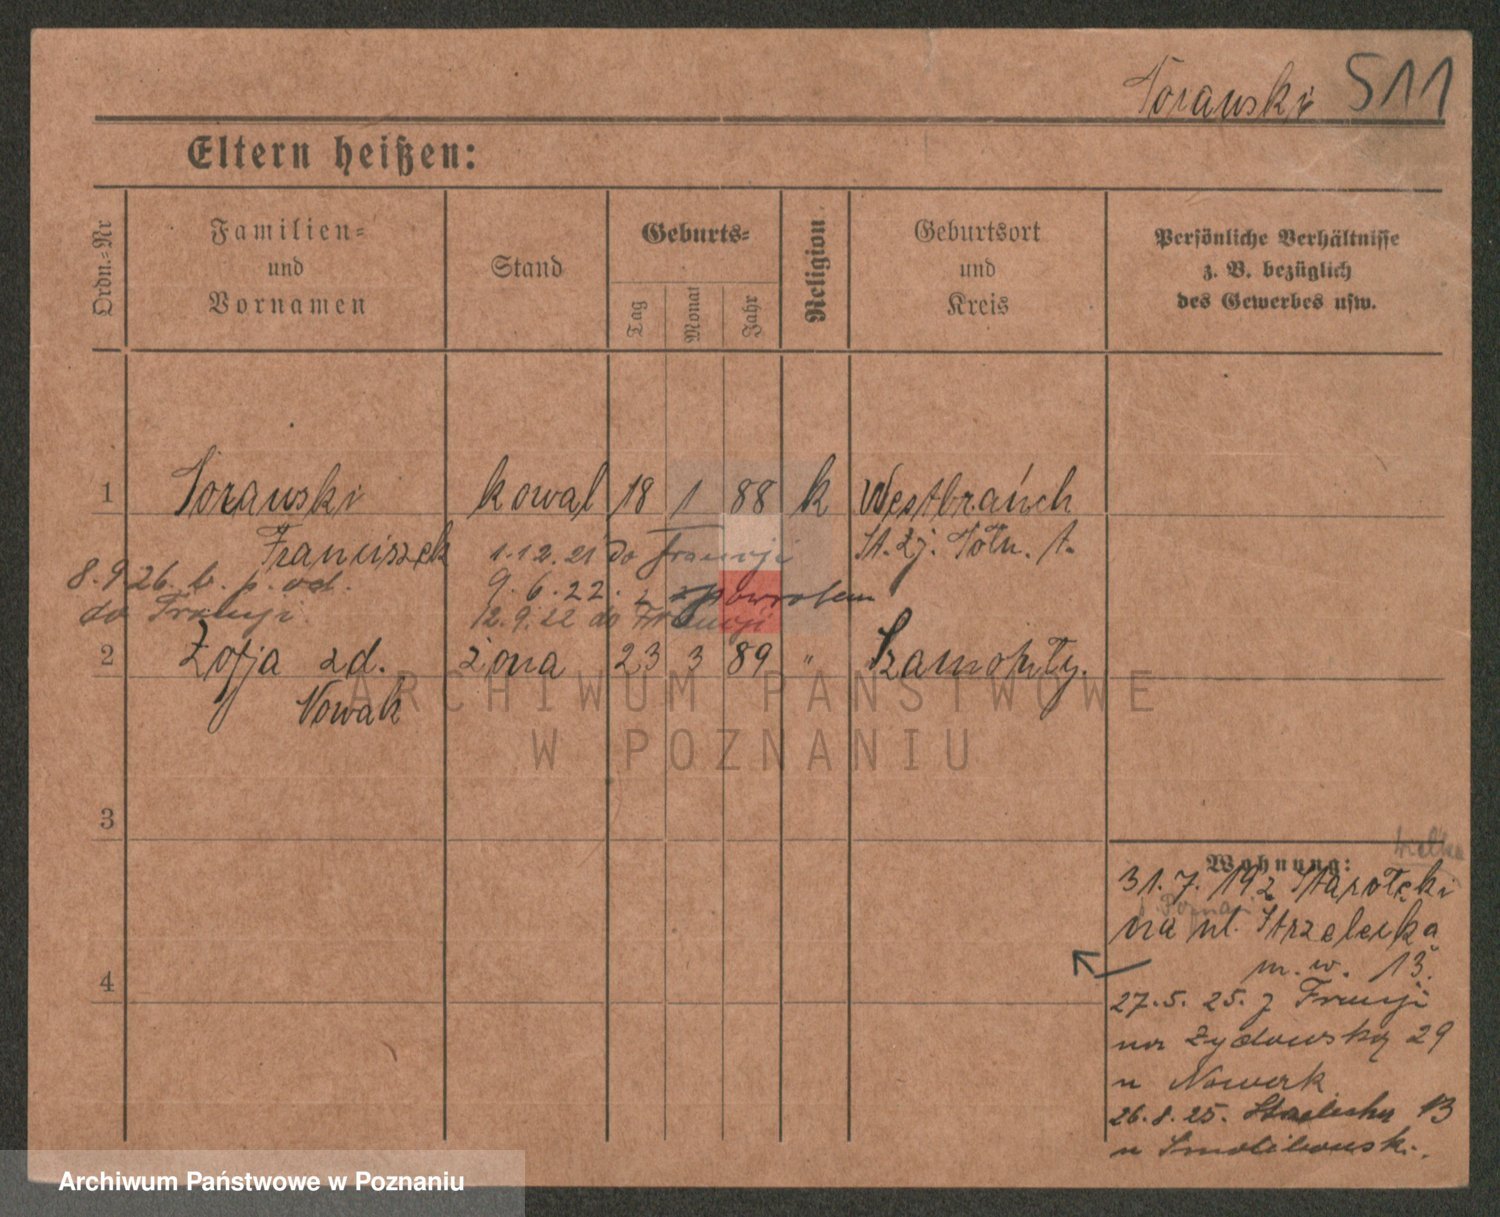 Torawski 511
Eltern heißen:
Ordn.=Nr
Familien=
und
Vornamen
Stand
Geburts=
Tag
Monat
Jahr
Religion
Geburtsort
und
Kreis
Persönliche Verhältnisse
z. B. bezüglich
des Gewerbes usw.
1 Torawski kowal 18 1 88 k Westbrańch
Franciszek 1.12.21 do Francji St. Zj. Półn. A.
8.9.26. b. p. od. 9.6.22. z zpowrotem
do Francji. 12.9.22 do Francji
2 Zofja zd. żona 23 3 89 " Szamotuły.
Nowak
ARCHIWUM PAŃSTWOWE
W POZNANIU
3
Wohnung:
31.7.192 Starołęki
na ul. Strzelecka
4
m. w. 13.
27.5.25. z Francji
na Żydowską 29
u Nowak
26.8.25. 13
u
Archiwum Państwowe w Poznaniu